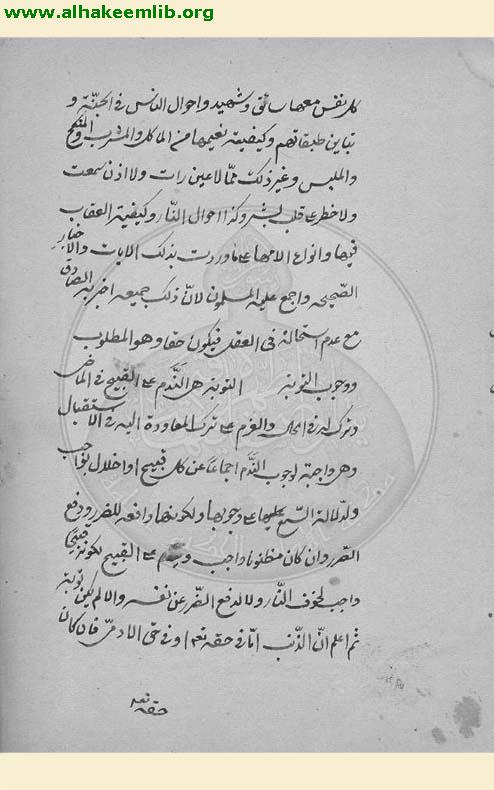 www.alhakeemlib.org
كل نفس معها سائق وشهيد واحوال الناس فى الجنة و
تباين طبقاتهم وكيفية نعيمها من الماكل والمشرب والمنكح
والملبس وغير ذلك ممّا لا عين رات ولا اذن سمعت
ولا خطر على قلب بشر وكذا احوال النّار وكيفية العقاب
فيها وانواع الامها على ما وردت بذلك الايات والاخبار
الصّحيحه واجمع عليه المسلمون لانّ ذلك جميعه اخبر به الصّادق
مع عدم استحالته فى العقل فيكون حقا وهو المطلوب
ووجوب التوبة التوبة هى النّدم على القبيح فى الماضى
وترك له فى الحال والعزم على ترك المعاودة اليه فى الاستقبال
وهى واجبة لوجوب النّدم اجماعا عن كل قبيح او اخلال بواجب
ولدلالة السّمع على وجوبها ولكونها دافعة للضرر ودفع
الضرر وان كان مظنونا واجب ويندم على القبيح لكونه قبيحا
لخوف النّار ولا لدفع الضّرر عن نفسه والا لم يكن توبة
ثم اعلم انّ الذّنب امّا فى حقه تعم او فى حق الادمىّ فان كان
حقه تعم